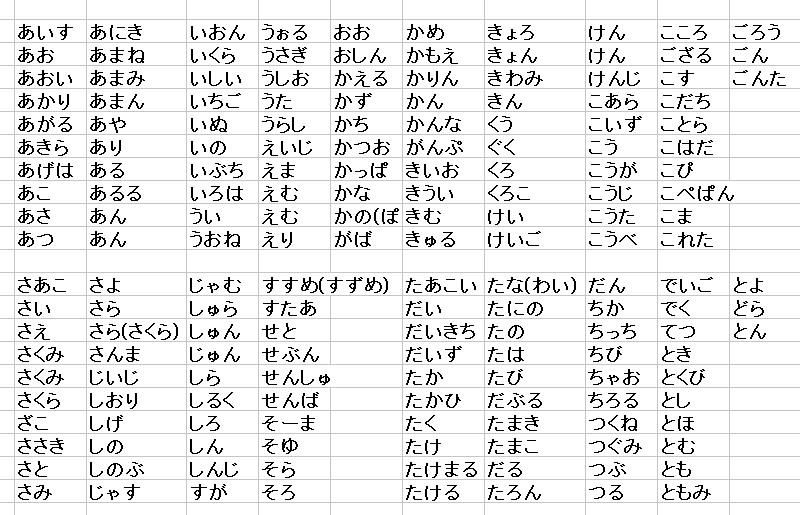 あいす あにき いおん うぉる おお かめ きょろ けん こころ ごろう
あお あまね いくら うさぎ おしん かもえ きょん けん ござる ごん
あおい あまみ いしい うしお かえる かりん きわみ けんじ こす ごんた
あかり あまん いちご うた かず かん きん こあら こだち
あがる あや いぬ うらし かち かんな くう こいず ことら
あきら あり いの えいじ かつお がんぷ ぐく こう こはだ
あげは ある いぶち えま かっぱ きいお くろ こうが こぴ
あこ あるる いろは えむ かな きうい くろこ こうじ こぺぱん
あさ あん うい えむ かの(ぽ きむ けい こうた こま
あつ あん うおね えり がば きゅる けいご こうべ これた
さあこ さよ じゃむ すすめ(すずめ) たあこい たな(わい) だん でいご とよ
さい さら しゅら すたあ だい たにの ちか でく どら
さえ さら(さくら) しゅん せと だいきち たの ちっち てつ とん
さくみ さんま じゅん せぶん だいず たは ちび とき
さくみ じいじ しら せんしゅ たか たび ちゃお とくび
さくら しおり しるく せんば たかひ だぶる ちろる とし
ざこ しげ しろ そーま たく たまき つくね とほ
ささき しの しん そゆ たけ たまこ つぐみ とむ
さと しのぶ しんじ そら たけまる だる つぶ とも
さみ じゃす すが そろ たける たろん つる ともみ